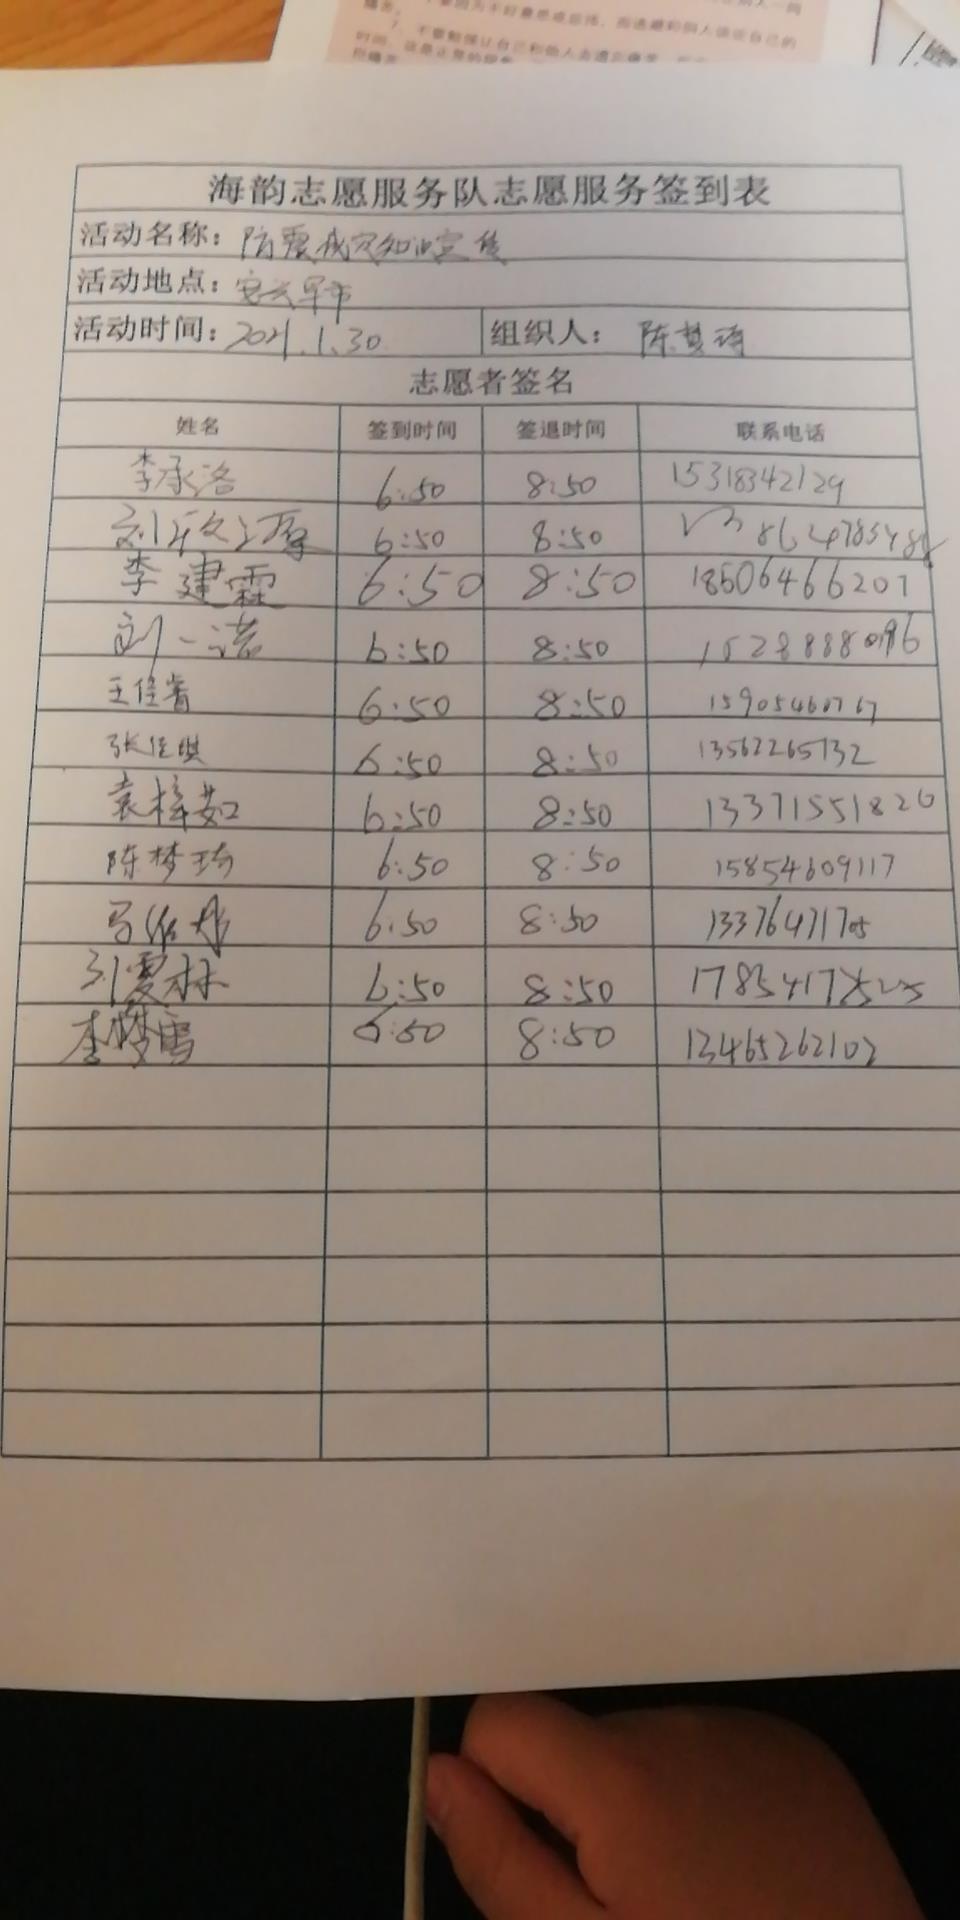 海韵志愿服务队志愿服务签到表
活动名称：防震减灾知识宣传
活动地点：安兴早市
活动时间：2021.1.30 组织人：陈梦琦
志愿者签名
姓名 签到时间 签退时间 联系电话
李承洛 6:50 8:50 15318342129
6:50 8:50
李建霖 6:50 8:50 18606466207
刘一诺 6:50 8:50
王佳睿 6:50 8:50 15905460767
张佳琪 6:50 8:50 13562265732
袁梓茹 6:50 8:50 13371551826
陈梦琦 6:50 8:50 15854609117
6:50 8:50 13376471705
刘霞林 6:50 8:50
李梦雪 6:50 8:50 13465262102